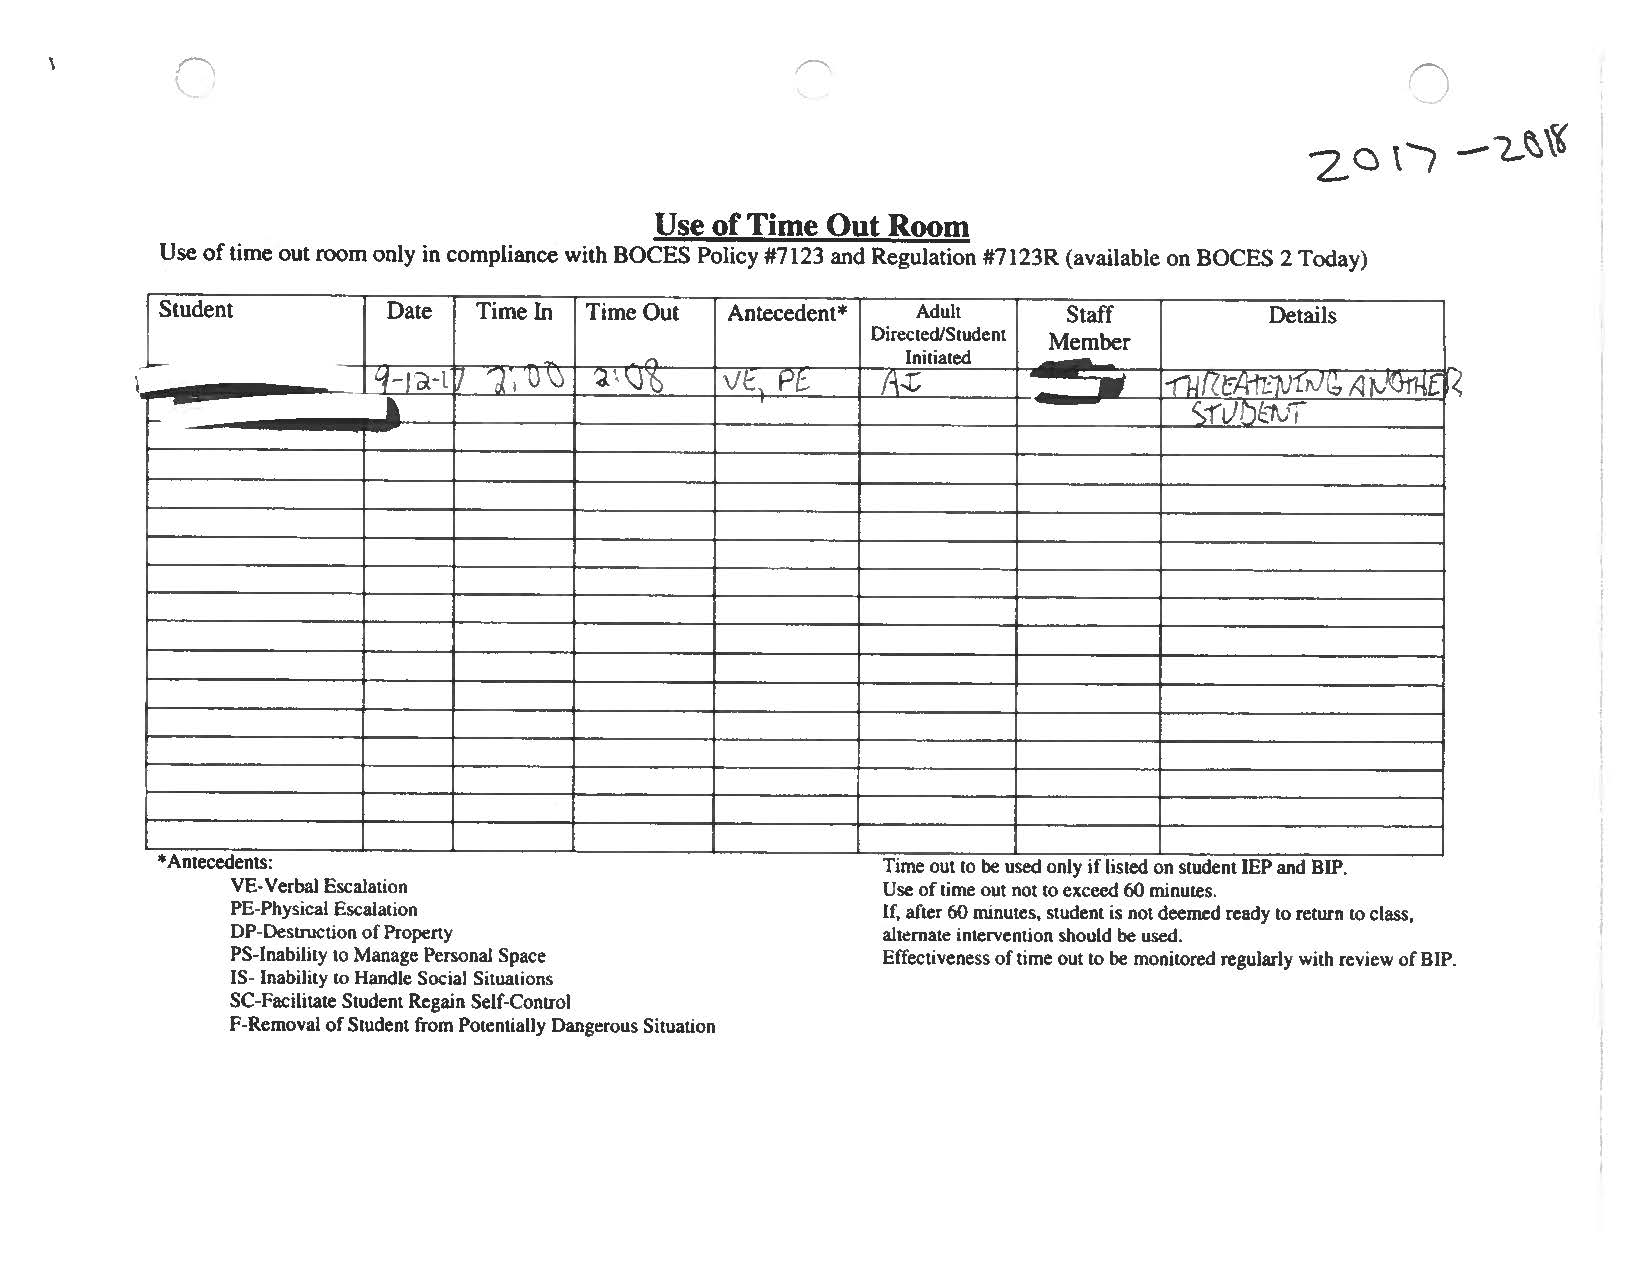 2017-2018
Use of Time Out Room
Use of time out room only in compliance with BOCES Policy #7123 and Regulation #7123R (available on BOCES 2 Today)
Student Date Time In Time Out Antecedent* Adult Directed/Student Initiated Staff Member Details
9-12-17 2:00 2:08 VE, PE AI THREATENING ANOTHER
STUDENT
*Antecedents:
VE-Verbal Escalation
PE-Physical Escalation
DP-Destruction of Property
PS-Inability to Manage Personal Space
IS- Inability to Handle Social Situations
SC-Facilitate Student Regain Self-Control
F-Removal of Student from Potentially Dangerous Situation
Time out to be used only if listed on student IEP and BIP.
Use of time out not to exceed 60 minutes.
If, after 60 minutes, student is not deemed ready to return to class,
alternate intervention should be used.
Effectiveness of time out to be monitored regularly with review of BIP.